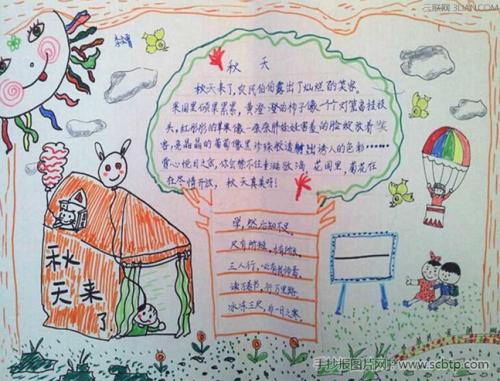 三联网 3LIAN.COM
秋 天
秋天来了,农民伯伯露出了灿烂的笑容。
果园里硕果累累,黄澄澄的柿子像一个个灯笼高挂枝
头,红彤彤的苹果像一张张胖娃娃害羞的脸绽放着笑
容,亮晶晶的葡萄像黑珍珠般透射出诱人的色彩……
赏心悦目之余,你会禁不住垂涎欲滴。花园里,菊花在
在尽情开放。秋天真美呀!
学,然后知不足。
尺有所短,寸有所长。
三人行,必有我师焉
读万卷书,行万里路。
冰冻三尺,非一日之寒。
秋
天来了
手抄报图片网 www.scbtp.com